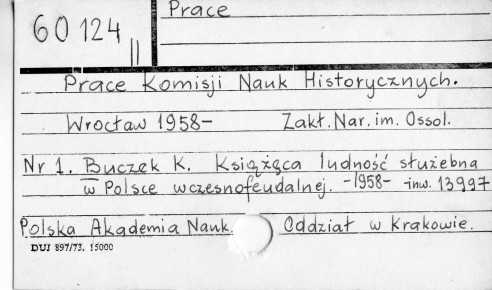 60124 II
Prace
Prace Komisji Nauk Historycznych.
Wrocław 1958- Zakł. Nar. im. Ossol.
Nr 1. Buczek K. Książęca ludność służebna
w Polsce wczesnofeudalnej. -1958- inw. 13997
Polska Akademia Nauk. Oddział w Krakowie.
DUJ 897/73. 15000